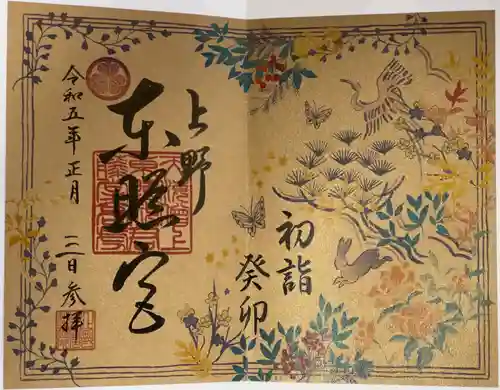 初詣
癸卯
上野
東照宮
令和五年正月
三日参拝